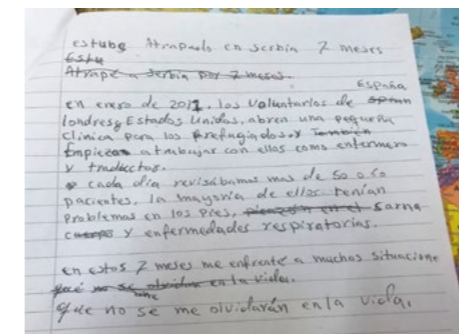 estube Atrapado en Serbia 7 meses
Estu
Atrape a Serbia por 7 meses.
España
en enero de 2017. los voluntarios de
londres y Estados Unidos, abren una pequeña
clinica para los Refugiados. y También
Empiezo a trabajar con ellos como enfermero
y traductor.
cada día revisábamos mas de 50 o 60
pacientes. la mayoría de ellos tenían
problemas en los pies, sarna
cuerpo y enfermedades respiratorias.
en estos 7 meses me enfrente a muchas situacione
que no se olvidar en la vida.
que no se me olvidarán en la vida,